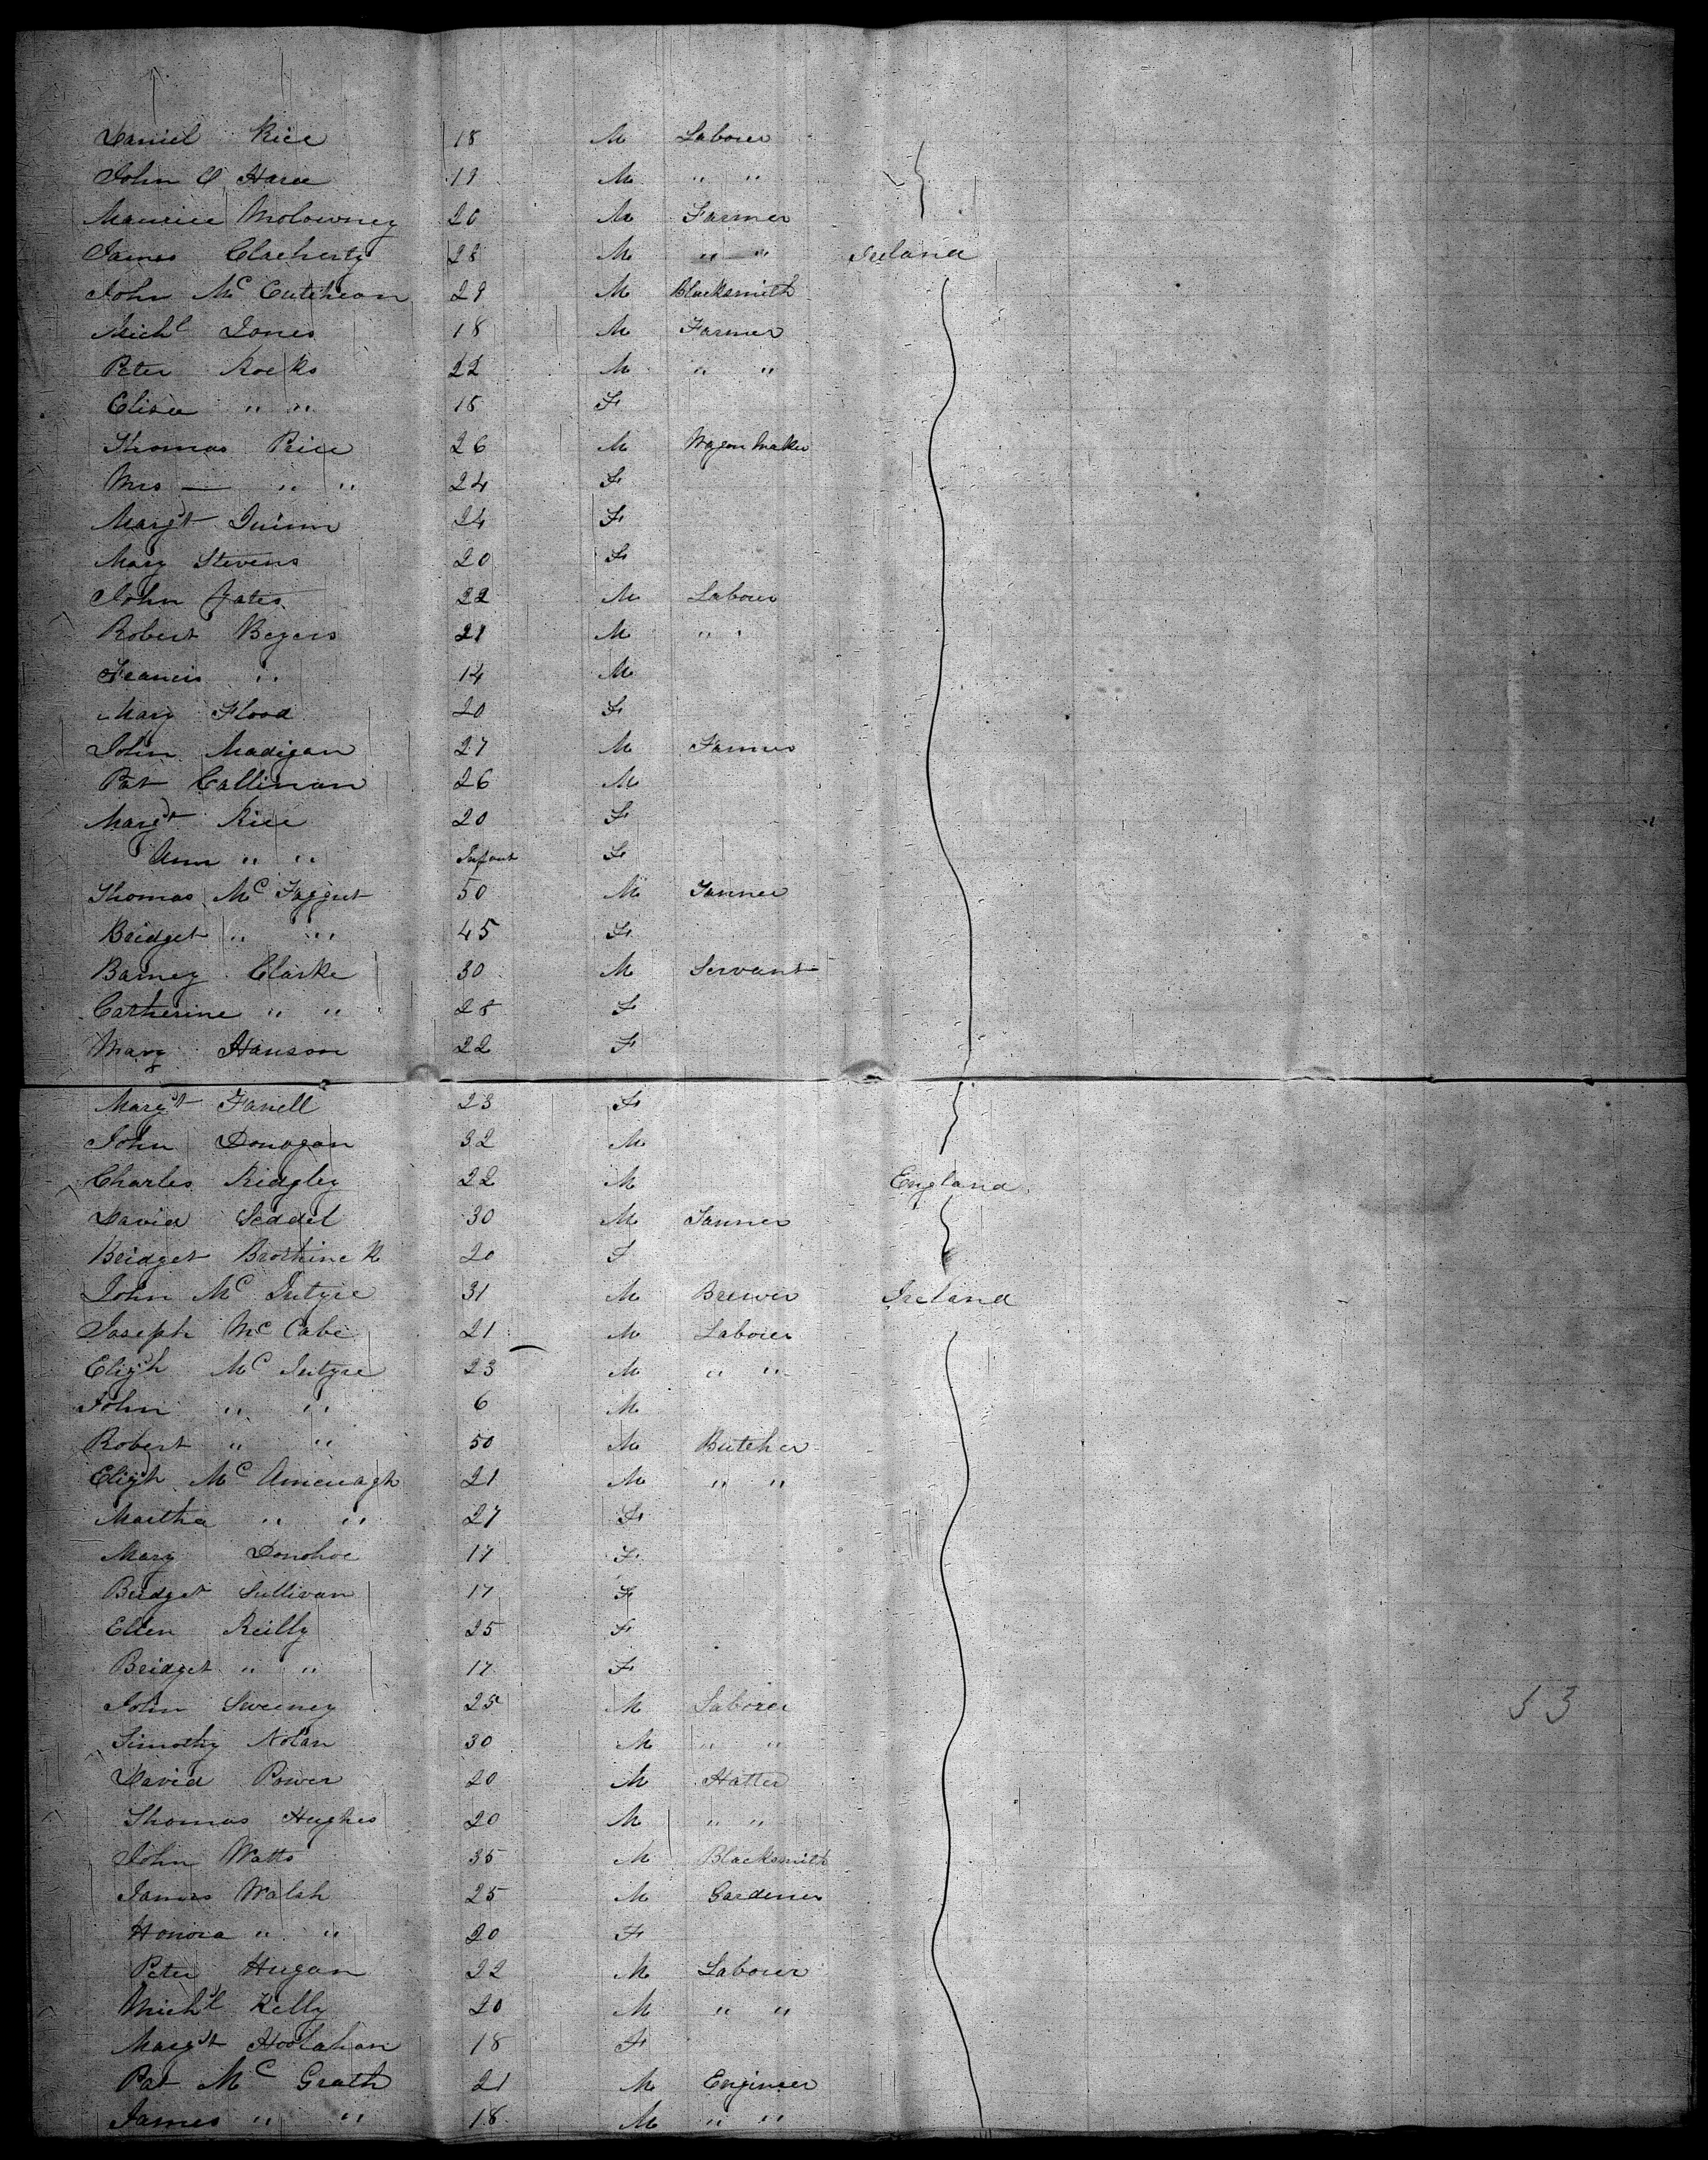 Daniel Rice 18 M Laborer
John O Hara 19 M " "
Maurice Molowney 20 M Farmer
James Claeherty 28 M " " Ireland
John Mc Cutcheon 29 M Blacksmith
Michl Jones 18 M Farmer
Peter Rocks 22 M " "
Eliza " " 15 F
Thomas Price 26 M Wagon Maker
Mrs — " " 24 F
Margt Quinn 24 F
Mary Stevens 20 F
John Yates 22 M Laborer
Robert Begers 21 M " "
Francis " 14 M
Mary Flood 20 F
John Madigan 27 M Farmer
Pat Callinan 26 M
Margt Rice 20 F
Ann " " Infant F
Thomas Mc Taggert 50 M Tanner
Bridget " " 45 F
Barney Clarke 30 M Servant
Catherine " " 28 F
Mary Hanson 22 F
Margt Farrell 23 F
John Donogan 32 M
Charles Ridgley 22 M England
David Seddel 30 M Tanner
Bridget 20 F
John Mc Intyre 31 M Brewer Ireland
Joseph Mc Cabe 21 M Laborer
Eligh Mc Intyre 23 M " "
John " " 6 M
Robert " " 50 M Butcher
Eligh Mc 21 M " "
Martha " " 27 F
Mary Donohoe 17 F
Bridget Sullivan 17 F
Ellen Reilly 25 F
Bridget " " 17 F
John Sweeney 25 M Laborer 53
Timothy Nolan 30 M " "
David Power 20 M Hatter
Thomas Hughes 20 M " "
John Watts 35 M Blacksmith
James Walsh 25 M Gardener
Honora " " 20 F
Peter Hugan 22 M Laborer
Michl Kelly 20 M " "
Margt Hoolahan 18 F
Pat Mc Grath 21 M Engineer
James " " 18 M " "